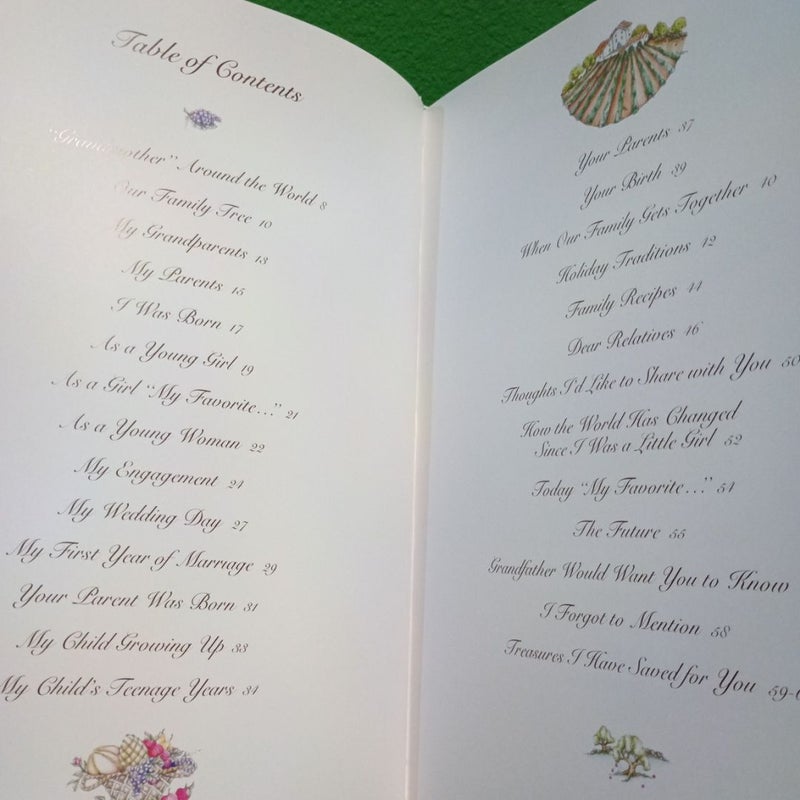 Table of Contents
"Grandmother" Around the World 8
Our Family Tree 10
My Grandparents 13
My Parents 15
I Was Born 17
As a Young Girl 19
As a Girl "My Favorite..." 21
As a Young Woman 22
My Engagement 24
My Wedding Day 27
My First Year of Marriage 29
Your Parent Was Born 31
My Child Growing Up 33
My Child's Teenage Years 34
Your Parents 37
Your Birth 39
When Our Family Gets Together 40
Holiday Traditions 42
Family Recipes 44
Dear Relatives 46
Thoughts I'd Like to Share with You 50
How the World Has Changed
Since I Was a Little Girl 52
Today "My Favorite..." 54
The Future 55
Grandfather Would Want You to Know
I Forgot to Mention 58
Treasures I Have Saved for You 59-